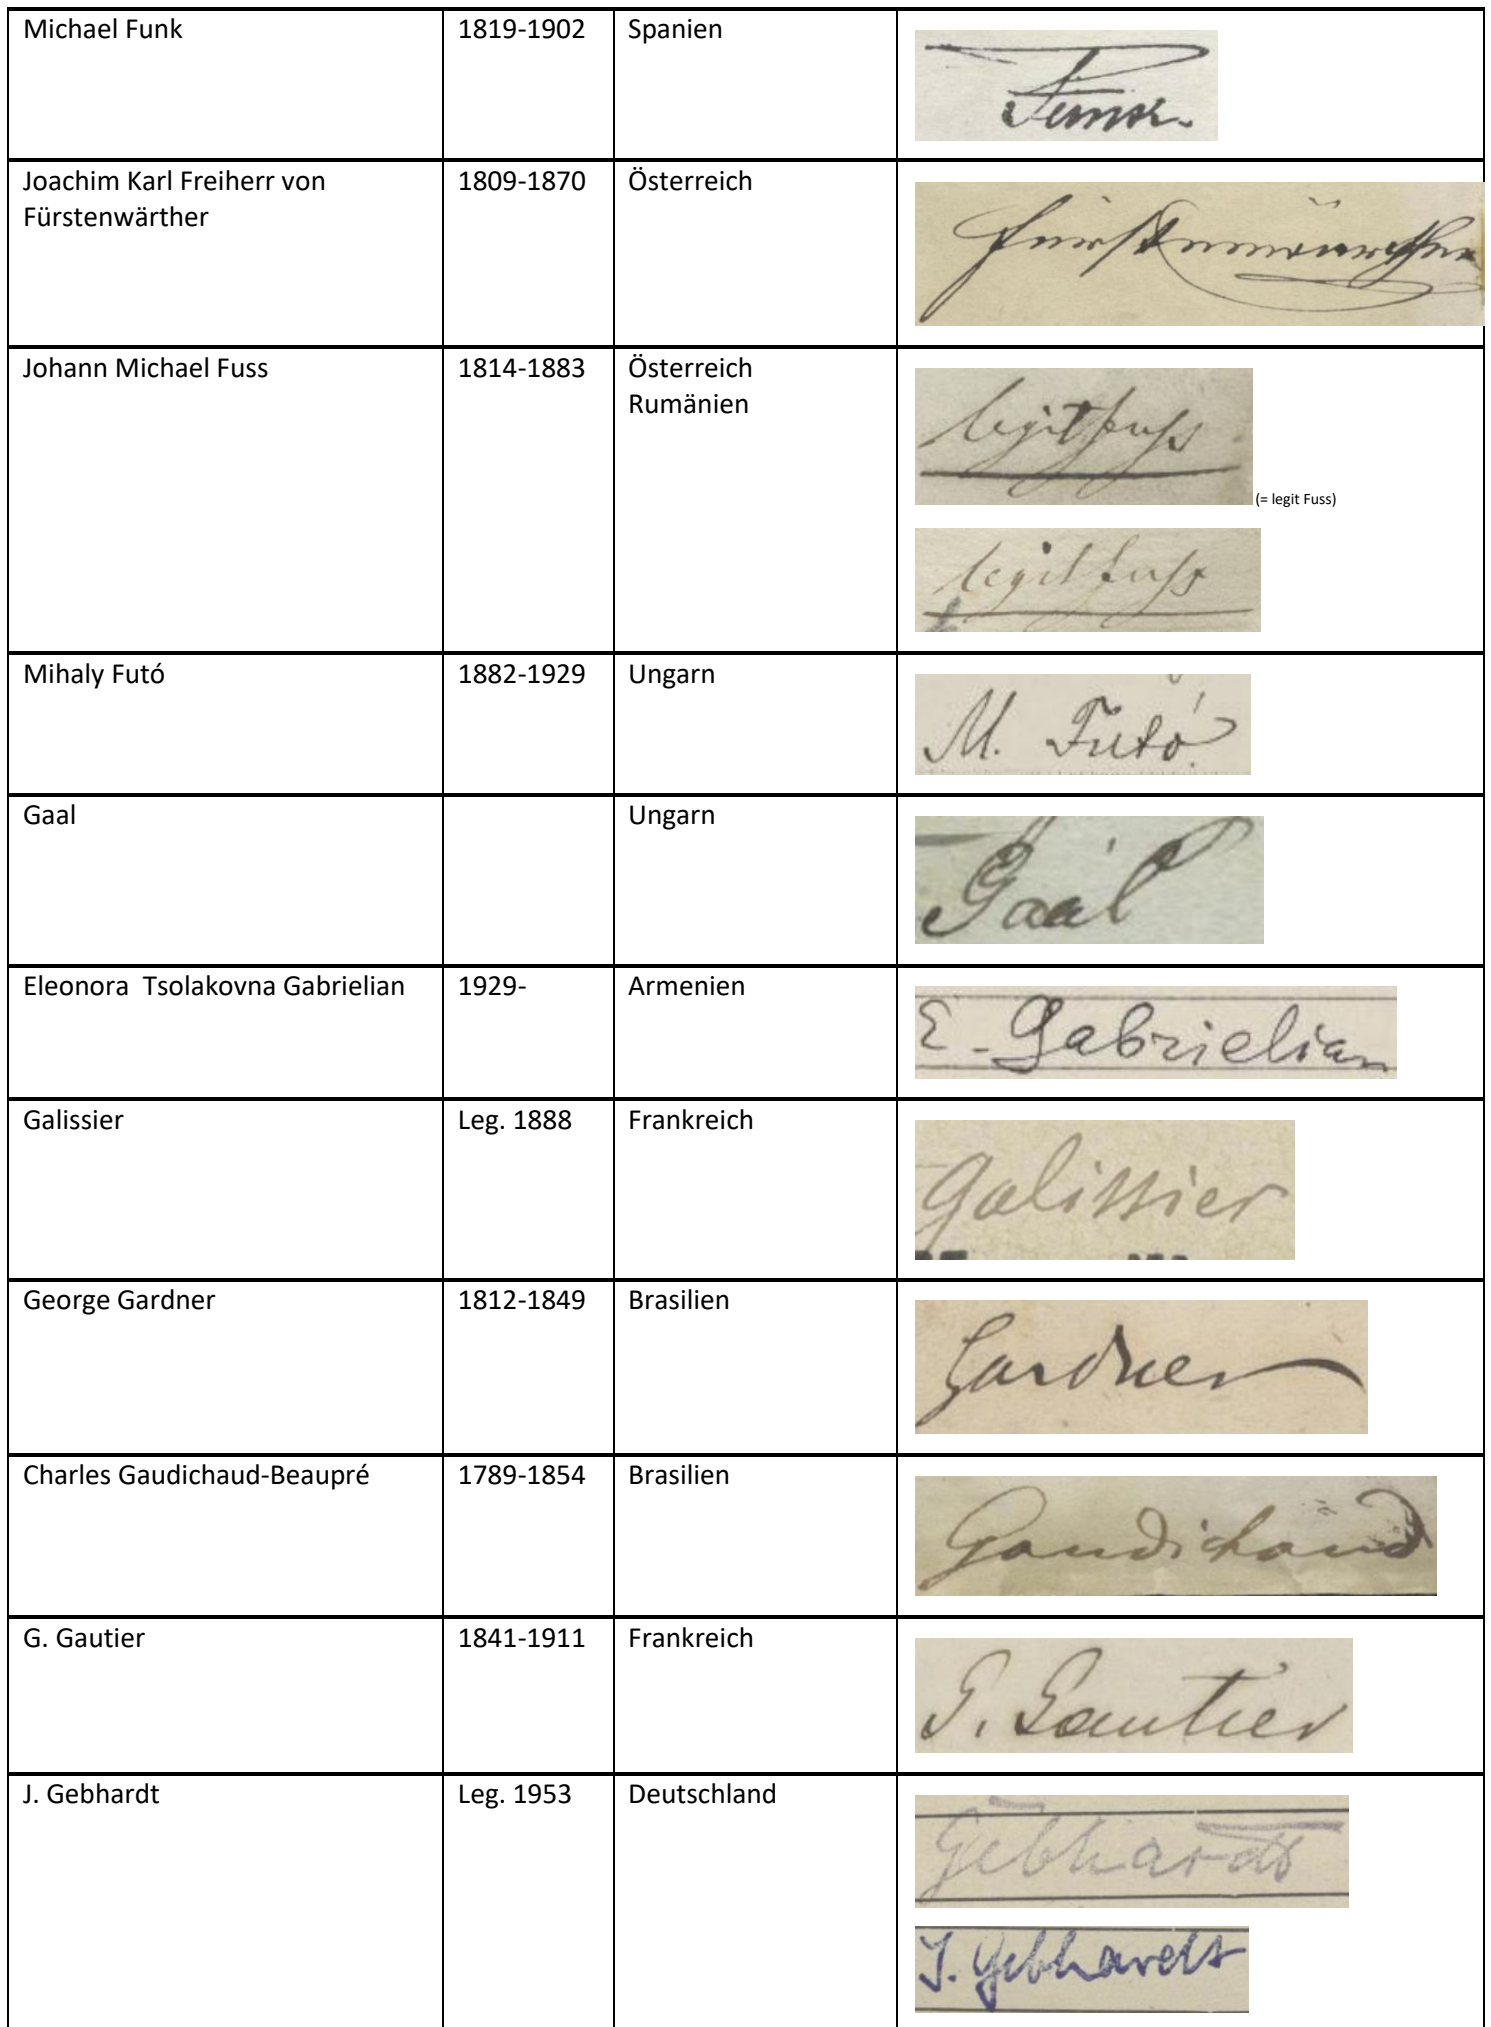 Michael Funk 1819-1902 Spanien
Funk.
Joachim Karl Freiherr von 1809-1870 Österreich
Fürstenwärther
Fürstenwärther
Johann Michael Fuss 1814-1883 Österreich
Rumänien
legit Fuss
(= legit Fuss)
legit Fuss
Mihaly Futó 1882-1929 Ungarn
M. Futó
Gaal Ungarn
Gaál
Eleonora Tsolakovna Gabrielian 1929- Armenien
E. Gabrielian
Galissier Leg. 1888 Frankreich
Galissier
George Gardner 1812-1849 Brasilien
Gardner
Charles Gaudichaud-Beaupré 1789-1854 Brasilien
Gaudichaud
G. Gautier 1841-1911 Frankreich
G. Gautier
J. Gebhardt Leg. 1953 Deutschland
Gebhardt
J. Gebhardt